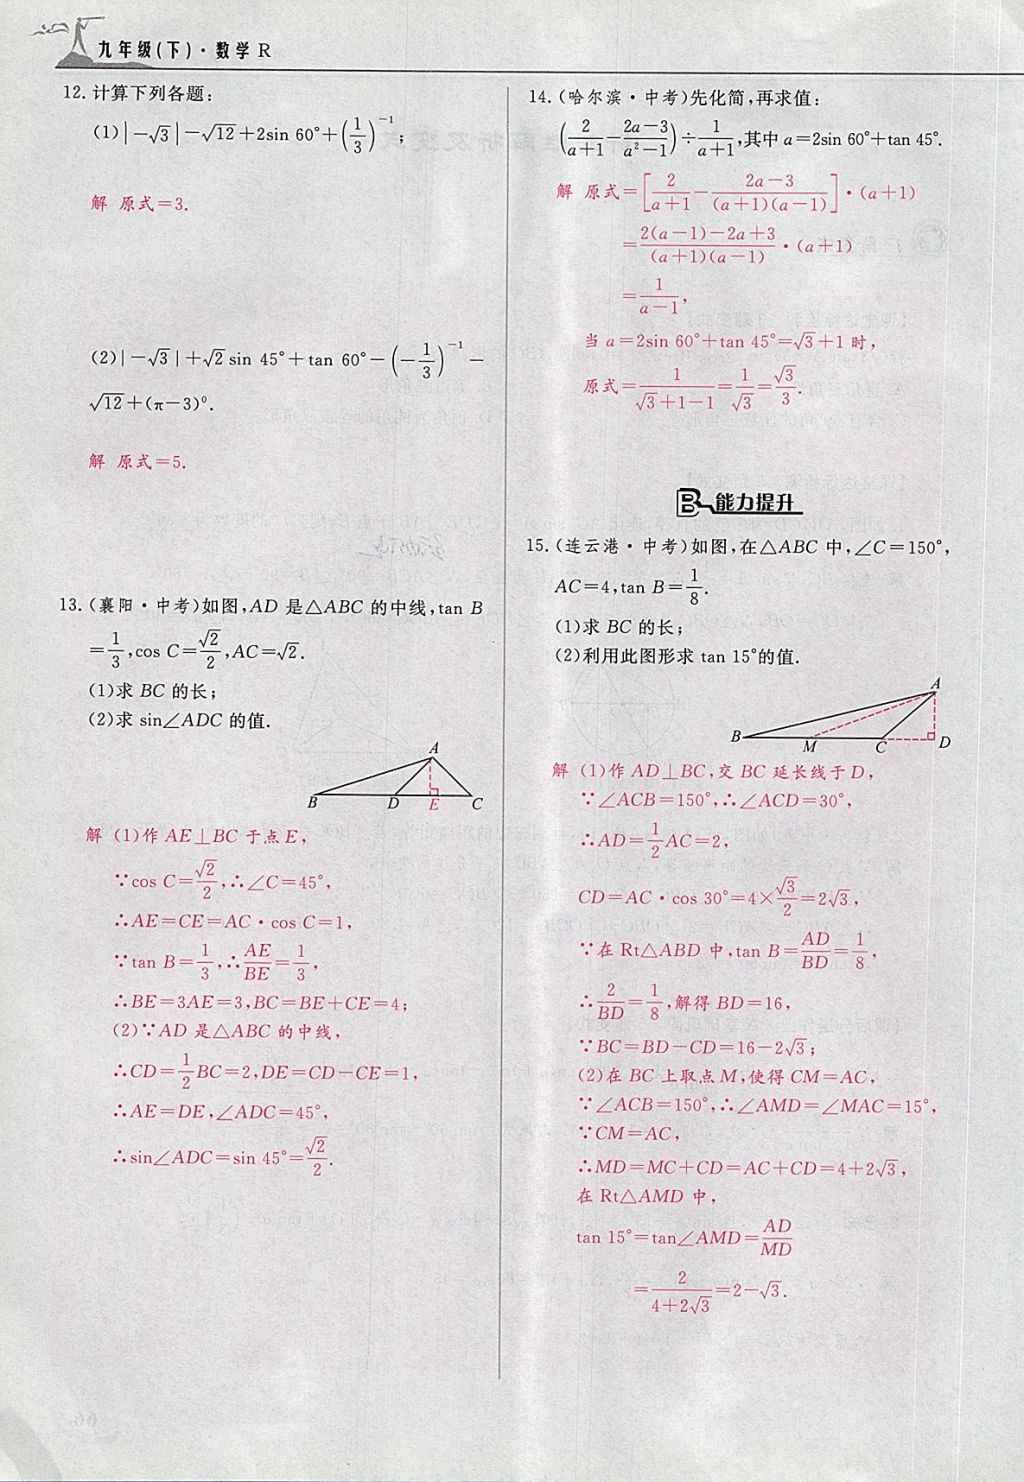 九年级(下)·数学 R
12. 计算下列各题:
(1)|-√3|-√12+2sin 60°+(1/3)⁻¹;
解 原式=3.
(2)|-√3|+√2 sin 45°+tan 60°-(-1/3)⁻¹-
√12+(π-3)⁰.
解 原式=5.
13. (襄阳·中考)如图,AD 是△ABC 的中线,tan B
=1/3,cos C=√2/2,AC=√2.
(1)求 BC 的长;
(2)求 sin∠ADC 的值.
A
B D E C
解 (1)作 AE⊥BC 于点 E,
∵cos C=√2/2,∴∠C=45°,
∴AE=CE=AC·cos C=1,
∵tan B=1/3,∴AE/BE=1/3,
∴BE=3AE=3,BC=BE+CE=4;
(2)∵AD 是△ABC 的中线,
∴CD=1/2BC=2,DE=CD-CE=1,
∴AE=DE,∠ADC=45°,
∴sin∠ADC=sin 45°=√2/2.
14. (哈尔滨·中考)先化简,再求值:
(2/(a+1)-(2a-3)/(a²-1))÷1/(a+1),其中 a=2sin 60°+tan 45°.
解 原式=[2/(a+1)-(2a-3)/((a+1)(a-1))]·(a+1)
=(2(a-1)-2a+3)/((a+1)(a-1))·(a+1)
=1/(a-1),
当 a=2sin 60°+tan 45°=√3+1时,
原式=1/(√3+1-1)=1/√3=√3/3.
B 能力提升
15. (连云港·中考)如图,在△ABC 中,∠C=150°,
AC=4,tan B=1/8.
(1)求 BC 的长;
(2)利用此图形求 tan 15°的值.
A
B M C D
解 (1)作 AD⊥BC,交 BC 延长线于 D,
∵∠ACB=150°,∴∠ACD=30°,
∴AD=1/2AC=2,
CD=AC·cos 30°=4×√3/2=2√3,
∵在 Rt△ABD 中,tan B=AD/BD=1/8,
∴2/BD=1/8,解得 BD=16,
∵BC=BD-CD=16-2√3;
(2)在 BC 上取点 M,使得 CM=AC,
∵∠ACB=150°,∴∠AMD=∠MAC=15°,
∵CM=AC,
∴MD=MC+CD=AC+CD=4+2√3,
在 Rt△AMD 中,
tan 15°=tan∠AMD=AD/MD
=2/(4+2√3)=2-√3.